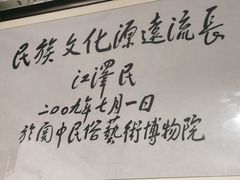 民族文化源遠流長
江澤民
二〇〇九年七月一日
於關中民俗藝術博物院